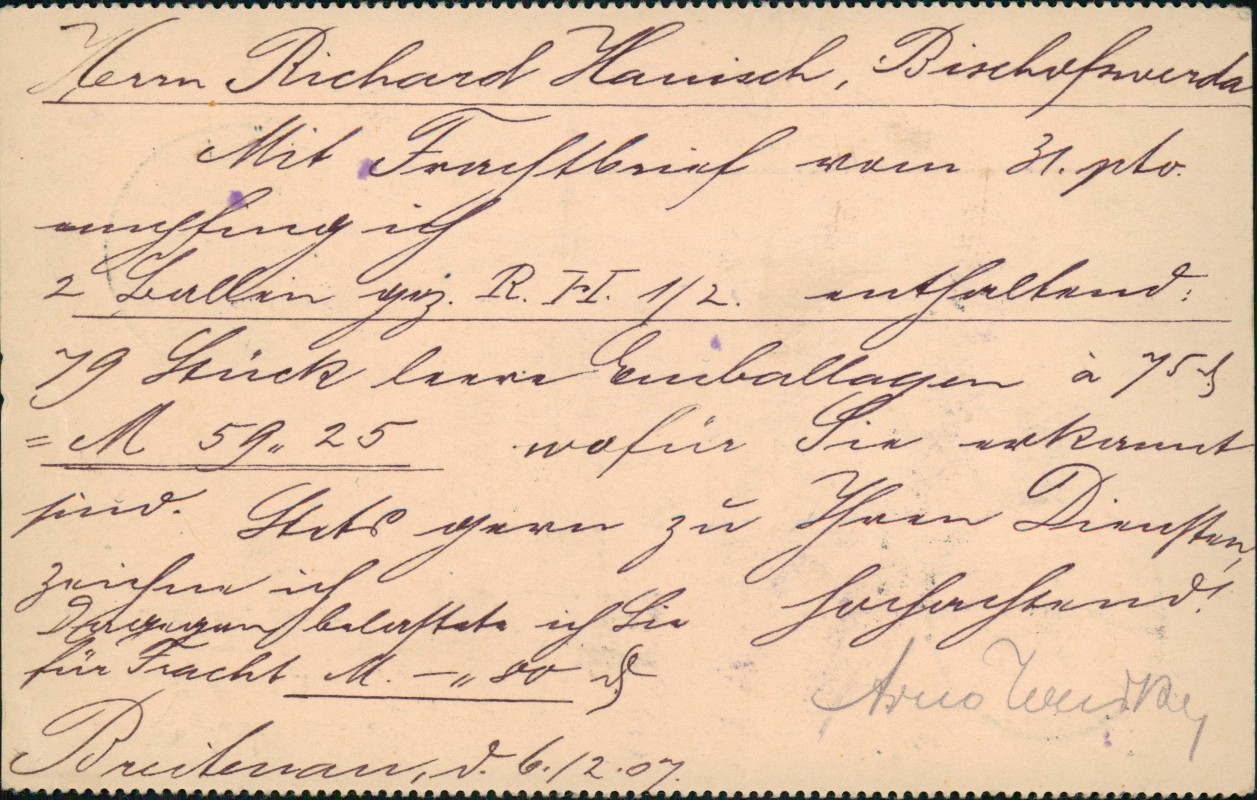 Herrn Richard Hanisch, Bischofswerda
Mit Frachtbrief vom 31. pto.
empfing ich
2 Ballen gez. R. H. 1/2. enthaltend:
79 Stück leere Emballagen à 75 ₰
= M 59,, 25 wofür Sie erkannt
sind. Stets gern zu Ihren Diensten,
zeichne ich hochachtend!
Dagegen belastete ich Sie
für Fracht M. -,, 80 ₰
Arno
Breitenau, d. 6./2.07.